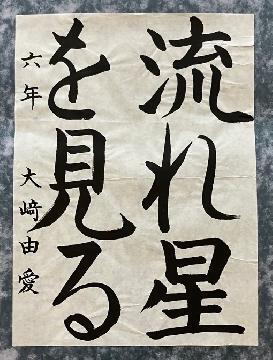 流れ星
を見る
六年 大﨑由愛